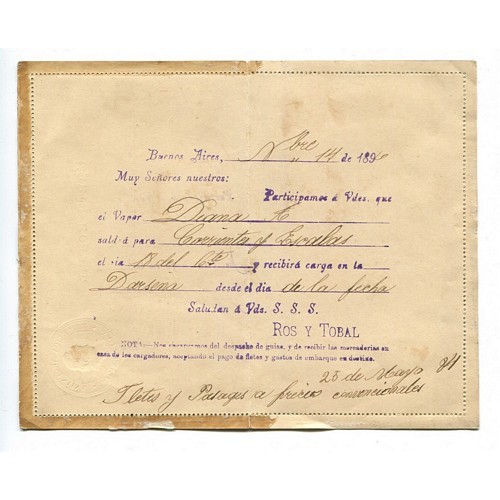 Buenos Aires, Nbre 14 de 1896
Muy Señores nuestros:
Participamos á Vdes. que
el Vapor Diana
saldrá para Corrientes y Escalas
el dia 18 del Cte y recibirá carga en la
Darsena desde el dia de la fecha
Saludan á Vds. S. S. S.
ROS Y TOBAL
NOTA—Nos encargamos del despacho de guias, y de recibir las mercaderias en
casa de los cargadores, aceptando el pago de fletes y gastos de embarque en destino.
25 de Mayo
Fletes y Pasages a precios convencionales